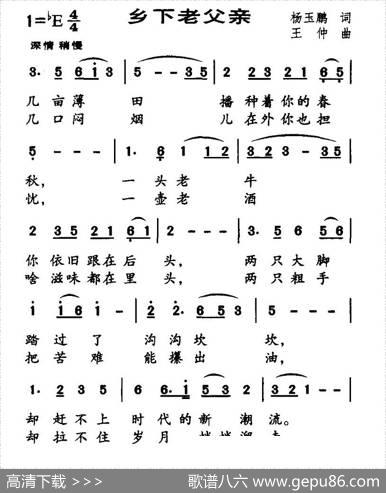 1=♭E 4/4 乡下老父亲 杨玉鹏 词
深情 稍慢 王仲 曲
3· 5 6 i 3 | 5 - - 3 5 | 2 3 5 3 2 1 6 5
几亩薄田 播种着你的春
几口闷烟 儿在外你也担
5 - - - | 1· 6 1 1 2 | 3 2 3 - 3 5
秋, 一头老牛
忧, 一壶老酒
2 3 5 2 1 6 1 | 2 - - - | 3· 5 6 5 6
你依旧跟在后头, 两只大脚
啥滋味都在里头, 两只粗手
i i 6 5 - | 2 2· 6 5 3 5 | 3 - - -
踏过了沟沟坎坎,
把苦难能攥出油,
1· 2 3 5 | 6 6· i 6 5 3 5 | 3 2 1 2 - -
却赶不上时代的新潮流。
却拉不住岁月
高清下载 >>> 歌谱八六 www.gepu86.com